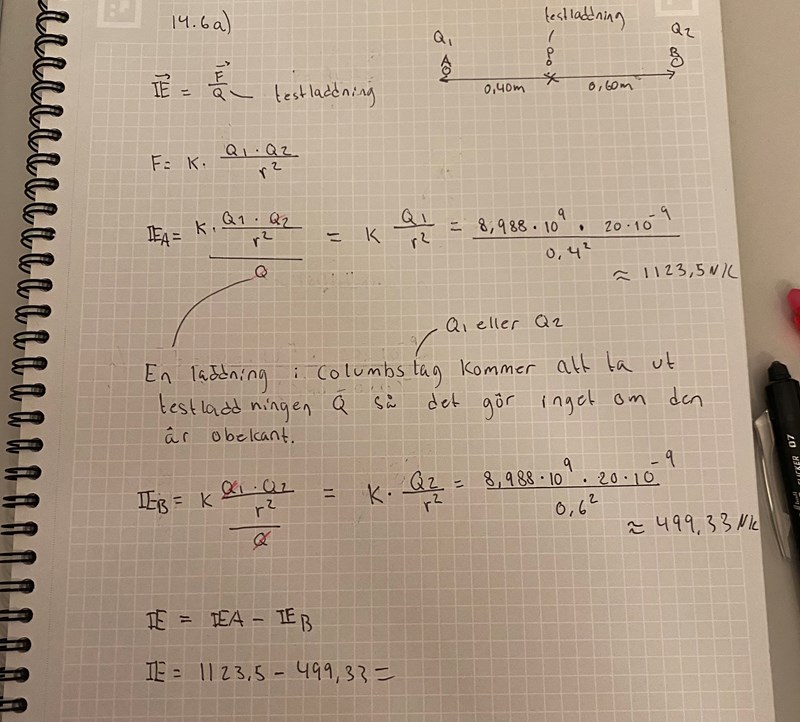 14.6a)
testladdning
Q₁ Q₂
A P B
0,40m 0,60m
IE = F/Q testladdning
F = K · Q₁ · Q₂ / r²
IE_A = K · Q₁ · Q₂ / r² / Q = K Q₁ / r² = 8,988 · 10⁹ · 20 · 10⁻⁹ / 0,4²
≈ 1123,5 N/C
Q₁ eller Q₂
En laddning i Columbs tag kommer att ta ut
testladdningen Q så det gör inget om den
är obekant.
IE_B = K Q₁ · Q₂ / r² / Q = K · Q₂ / r² = 8,988 · 10⁹ · 20 · 10⁻⁹ / 0,6²
≈ 499,33 N/C
IE = IE_A − IE_B
IE = 1123,5 − 499,33 =
07